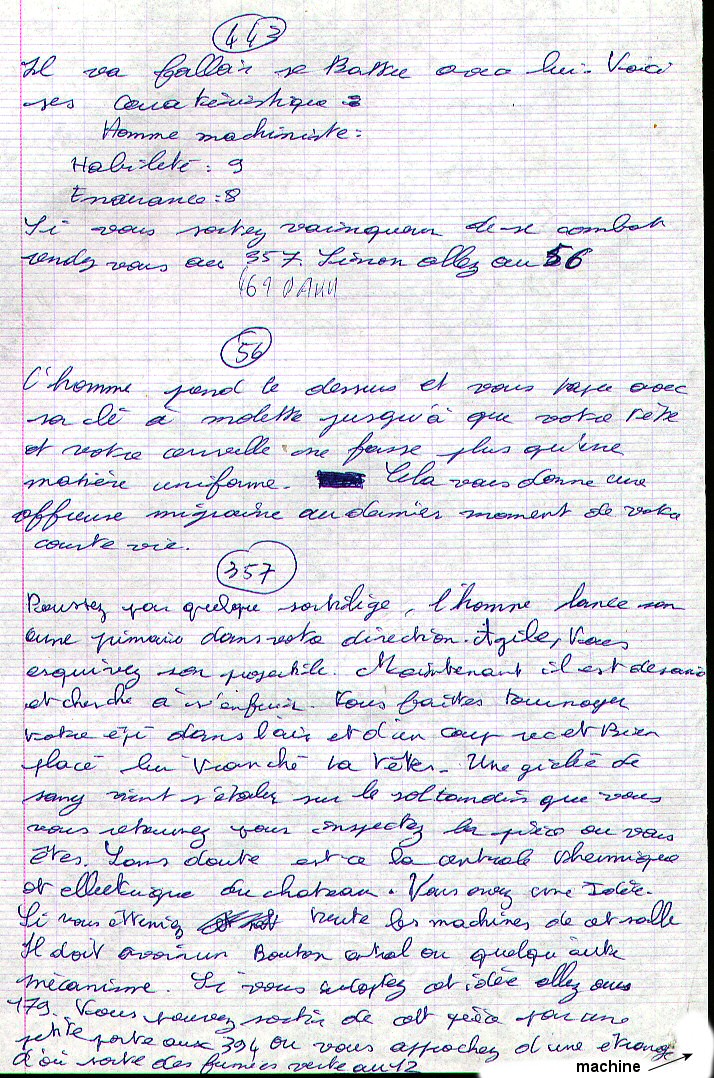 443
Il va falloir se Battre avec lui. Voici
ses caratéristique :
Homme machiniste :
Habileté : 9
Endurance : 8
Si vous sortez vainqueur de se combat
rendez vous au 357. Sinon allez au 56
56
L'homme prend le dessus et vous tape avec
sa clé à molette jusqu'à que votre tête
et votre cervelle ne fasse plus qu'une
matière uniforme. Cela vous donne une
affreuse migraine au dernier moment de votre
courte vie.
357
par quelque sortilège, l'homme lance son
arme primaire dans votre direction. Agile, vous
esquivez son projectile. Maintenant il est désarmé
et cherche à s'enfuir. Vous faites tournoyer
votre épé dans l'air et d'un coup sec et Bien
placé lui tranché la tête. Une giclé de
sang vient s'étaler sur le sol tandis que vous
vous retournez pour inspectez la pièce ou vous
êtes. Sans doute est ce la centrale thermique
et ellectrique du chateau. Vous avez une Idée.
Si vous toute les machines de cet salle
Il doit avoir un Bouton ou quelqu'autre
mécanisme. Si vous adoptez cet idée allez aux
179. Vous pouvez sortir de cet pièce par une
petite porte aux 394 ou vous approchez d'une étrange
d'où sorte des fumées verte au 12
machine